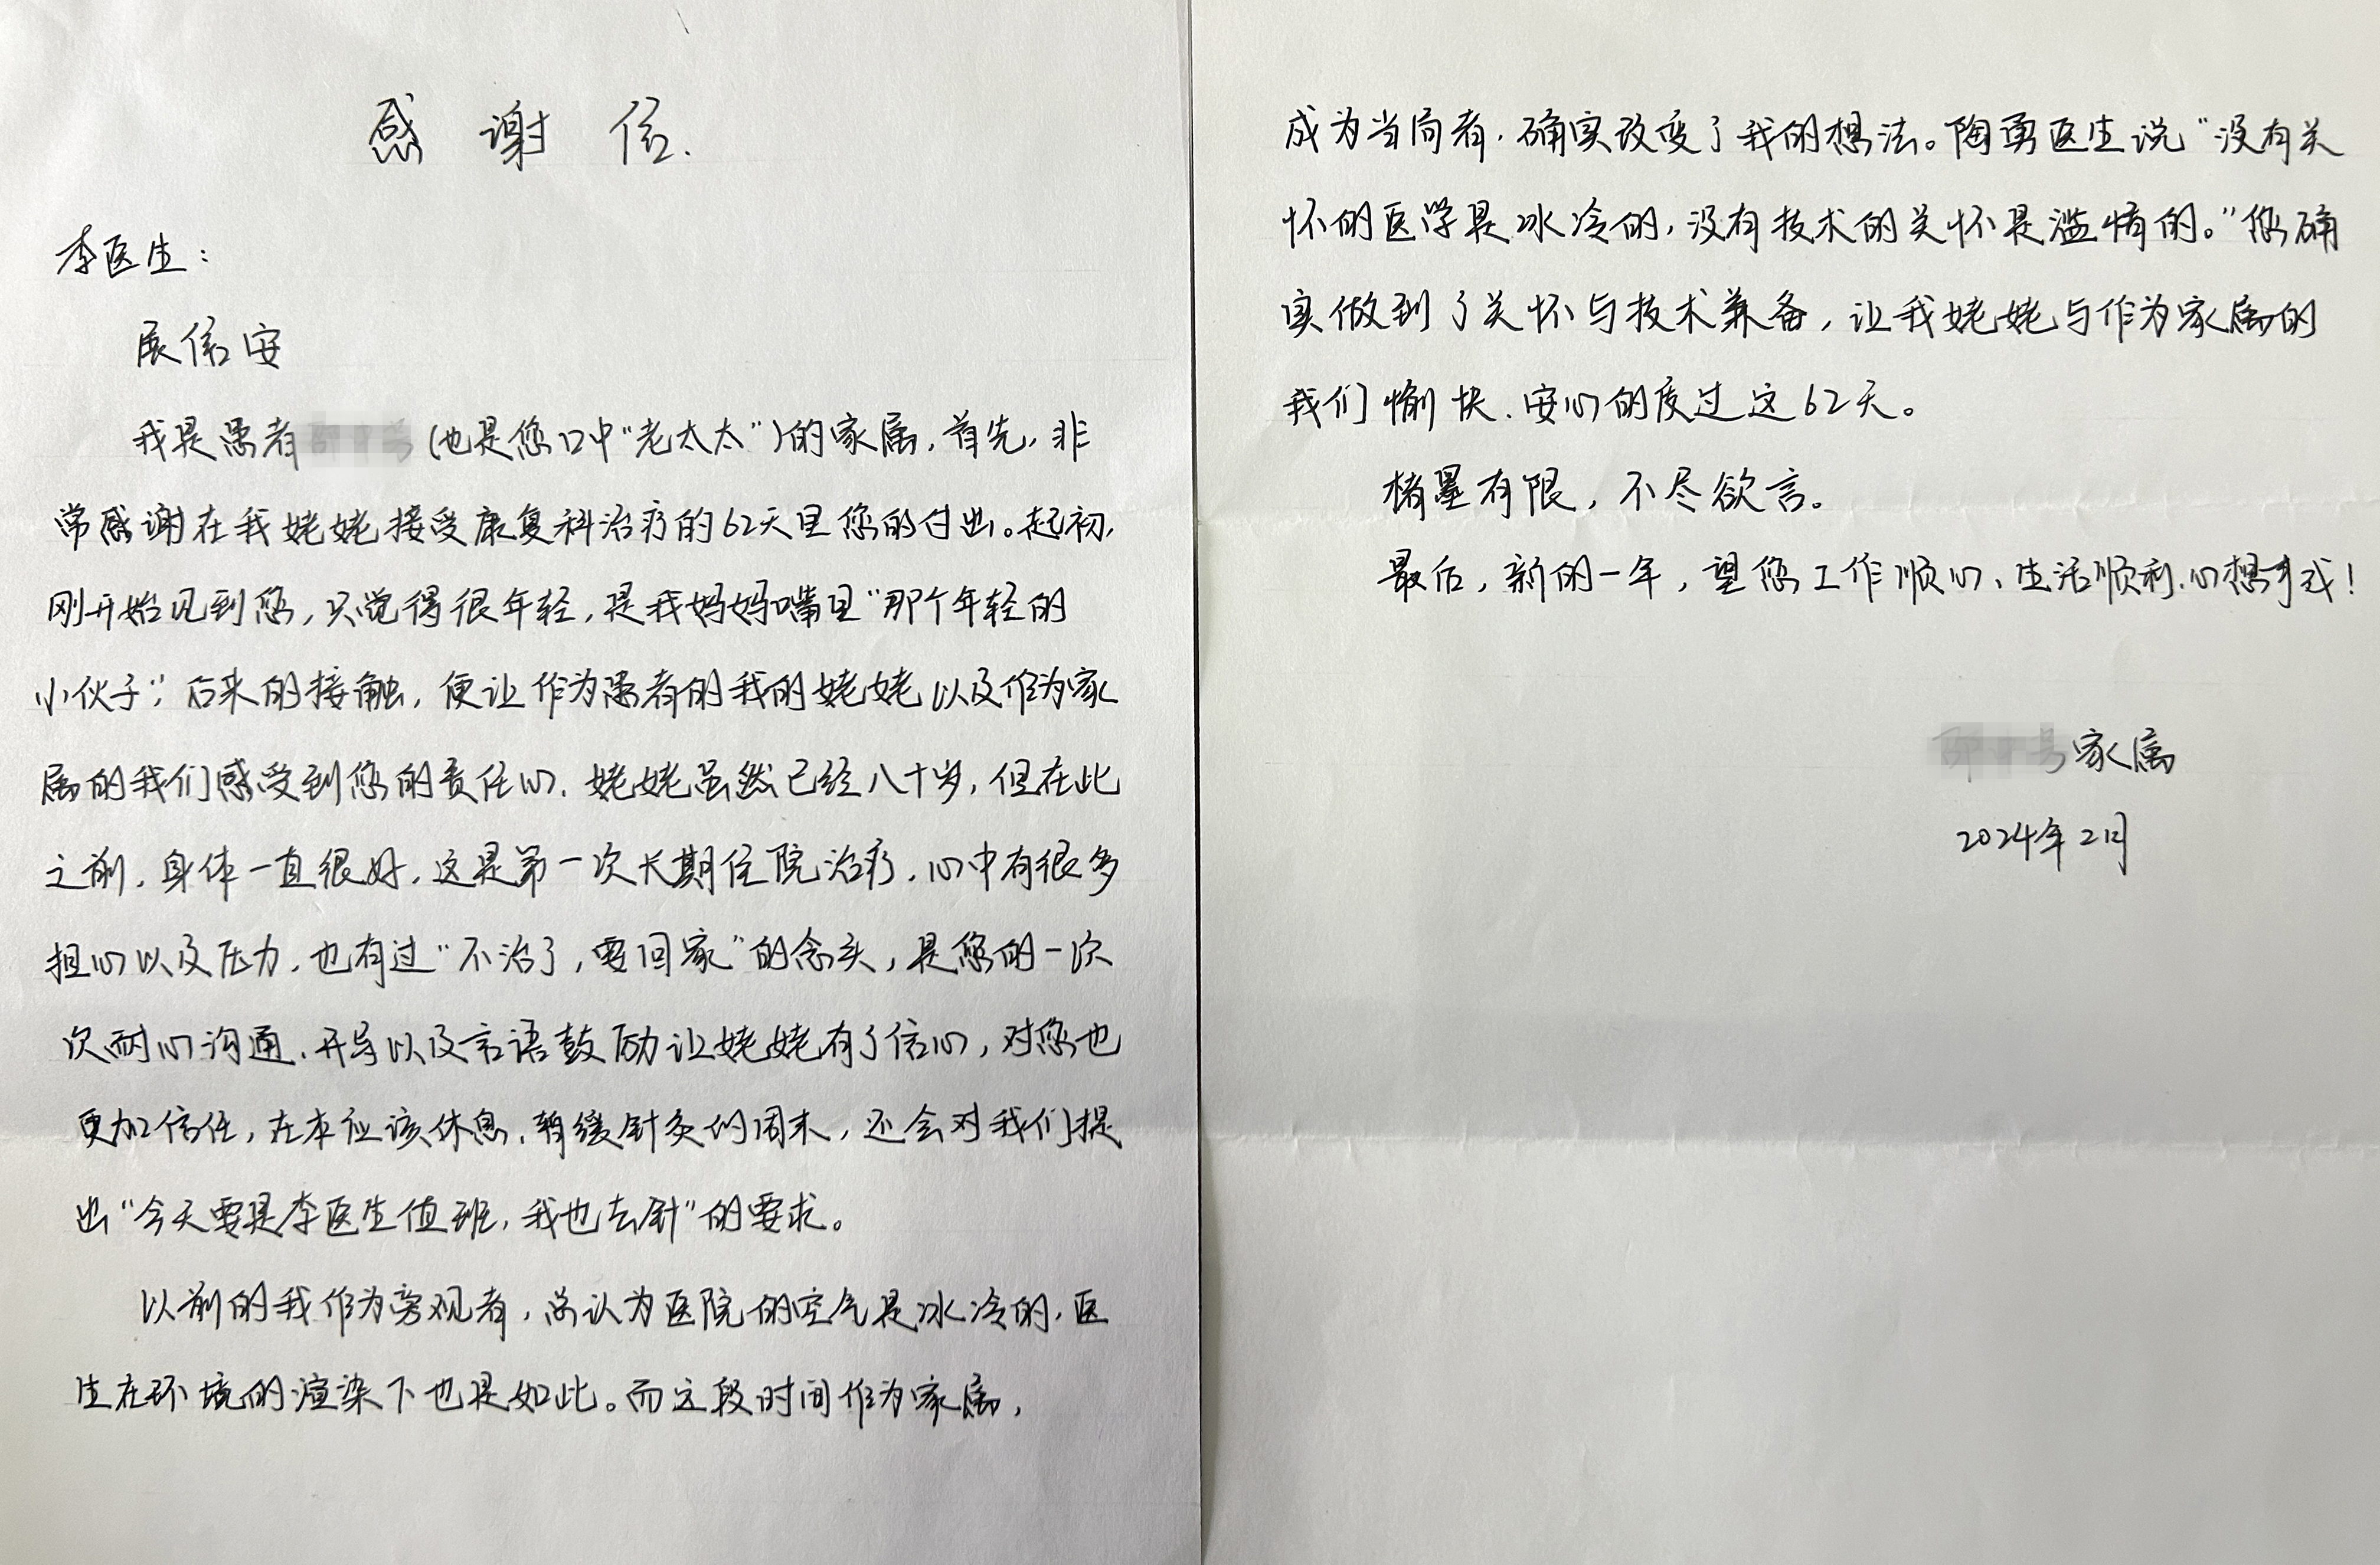 感谢信.
李医生：
展信安
我是患者（也是您口中“老太太”）的家属，首先，非
常感谢在我姥姥接受康复科治疗的62天里您的付出。起初，
刚开始见到您，只觉得很年轻，是我妈妈嘴里“那个年轻的
小伙子”；后来的接触，便让作为患者的我的姥姥以及作为家
属的我们感受到您的责任心，姥姥虽然已经八十岁，但在此
之前，身体一直很好，这是第一次长期住院治疗，心中有很多
担心以及压力，也有过“不治了，要回家”的念头，是您的一次
次耐心沟通、开导以及言语鼓励让姥姥有了信心，对您也
更加信任，在本应该休息、暂缓针灸的周末，还会对我们提
出“今天要是李医生值班，我也去针”的要求。
以前的我作为旁观者，总认为医院的空气是冰冷的，医
生在环境的渲染下也是如此。而这段时间作为家属，
成为当局者，确实改变了我的想法。陶勇医生说“没有关
怀的医学是冰冷的，没有技术的关怀是滥情的。”您确
实做到了关怀与技术兼备，让我姥姥与作为家属的
我们愉快、安心的度过这62天。
楮墨有限，不尽欲言。
最后，新的一年，望您工作顺心、生活顺利、心想事成！
家属
2024年2月